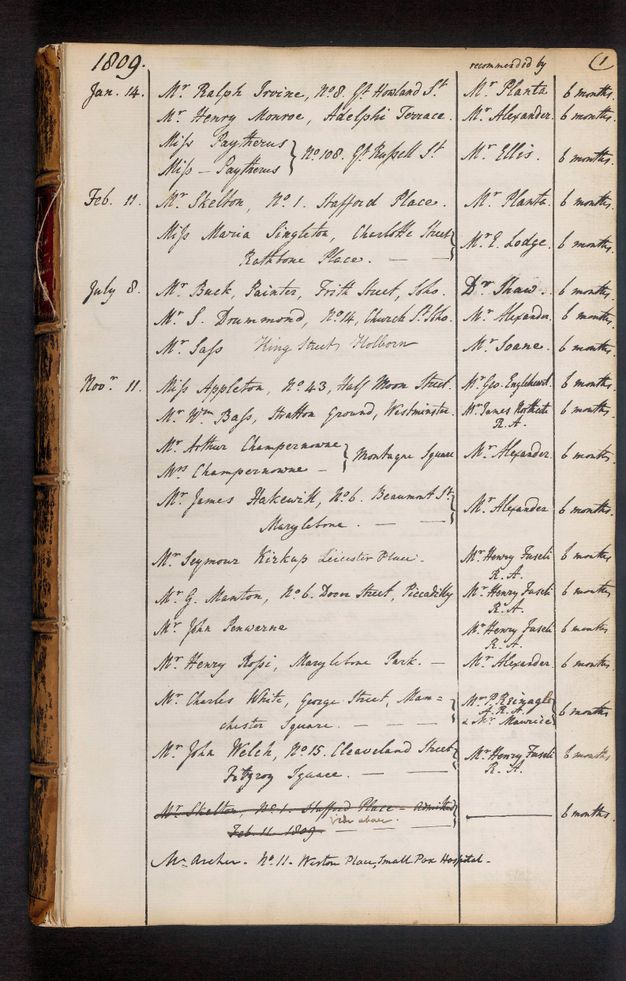 1809. recommended by (1)
Jan. 14. Mr Ralph Irvine, No 8. Gt Howland St Mr Planta 6 months.
Mr Henry Monroe, Adelphi Terrace. Mr Alexander. 6 months.
Miss Paytherus
Miss — Paytherus } No 108. Gt Russell St Mr Ellis. 6 months.
Feb. 11. Mr Skelton, No 1. Stafford Place. Mr Planta. 6 months.
Miss Maria Singleton, Charlotte Street
Rathbone Place. — — } Mr E. Lodge. 6 months.
July 8. Mr Buck, Painter, Frith Street, Soho. Dr Shaw. 6 months.
Mr S. Drummond, No 14, Church St Soho. Mr Alexander. 6 months.
Mr Sass King Street Holborn Mr Soane. 6 months.
Novr 11. Miss Appleton, No 43, Half Moon Street. Mr Geo. Engleheart. 6 months.
Mr Wm Bass, Stratton Ground, Westminster. Mr James Northcote 6 months.
R. A.
Mr Arthur Champernowne
Mrs Champernowne — } Montague Square Mr Alexander. 6 months.
Mr James Hakewill, No 6. Beaumont St
Marylebone. — — } Mr Alexander 6 months.
Mr Seymour Kirkup Leicester Place. Mr Henry Fuseli 6 months
R. A.
Mr G. Manton, No 6. Dover Street, Piccadilly Mr Henry Fuseli 6 months,
R. A.
Mr John Penwarne Mr Henry Fuseli 6 months
R. A.
Mr Henry Rossi, Marylebone Park. — Mr Alexander 6 months
Mr Charles White, George Street, Man= Mr P. Reinagle
A. R. A.
chester Square. — — } & Mr Maurice } 6 months
Mr John Welch, No 15. Cleaveland Street Mr Henry Fuseli 6 months
Fitzroy Square. — — } R. A.
Mr Skelton, No 1. Stafford Place — admitted
Feb. 11. 1809. vide above. — — } — 6 months.
Mr Archer. No 11. Weston Place, Small Pox Hospital.